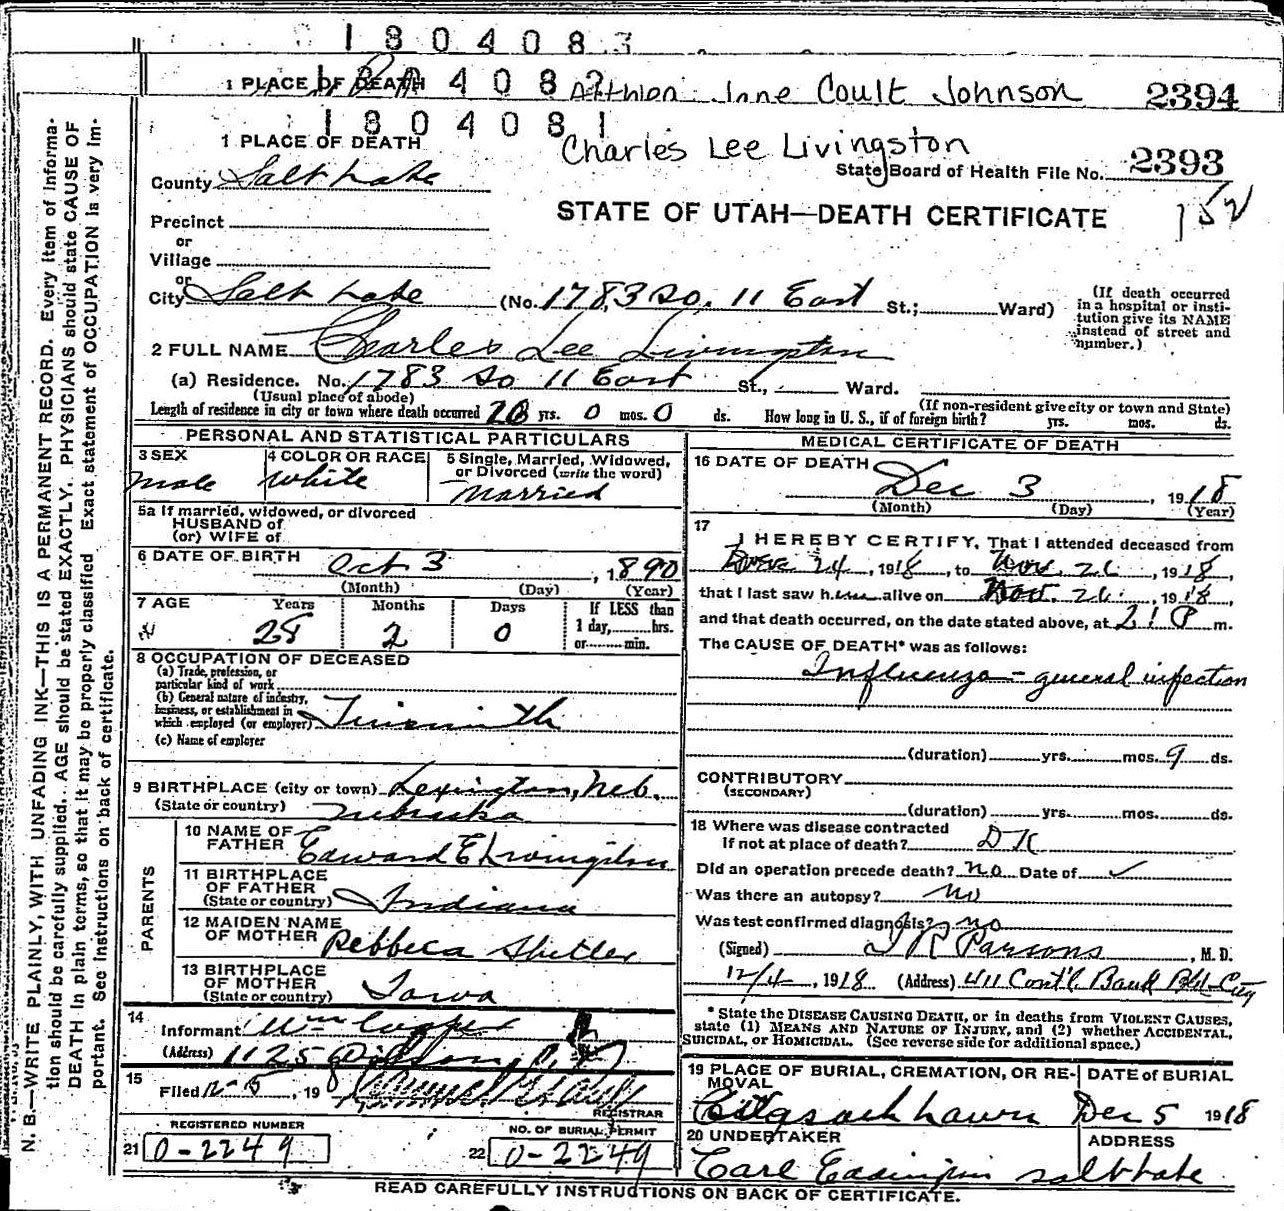 1804083
1 PLACE OF DEATH 1804082 Althea Jane Coult Johnson 2394
1804081
1 PLACE OF DEATH Charles Lee Livingston
State Board of Health File No. 2393
County Salt Lake
152
STATE OF UTAH—DEATH CERTIFICATE
Precinct
or
Village
or
City Salt Lake (No. 1783 So. 11 East St.; Ward)
(If death occurred in a hospital or institution give its NAME instead of street and number.)
2 FULL NAME Charles Lee Livingston
(a) Residence. No. 1783 So 11 East St., Ward.
(Usual place of abode) (If non-resident give city or town and State)
Length of residence in city or town where death occurred 28 yrs. 0 mos. 0 ds. How long in U. S., if of foreign birth? yrs. mos. ds.
PERSONAL AND STATISTICAL PARTICULARS
3 SEX male
4 COLOR OR RACE White
5 Single, Married, Widowed, or Divorced (write the word) Married
5a If married, widowed, or divorced
HUSBAND of
(or) WIFE of
6 DATE OF BIRTH Oct 3, 1890
(Month) (Day) (Year)
7 AGE Years Months Days If LESS than
28 2 0 1 day, hrs.
or min.
8 OCCUPATION OF DECEASED
(a) Trade, profession, or
particular kind of work
(b) General nature of industry,
business, or establishment in
which employed (or employer) Tinsmith
(c) Name of employer
9 BIRTHPLACE (city or town) Lexington, Neb.
(State or country) Nebraska
PARENTS
10 NAME OF FATHER Edward E Livingston
11 BIRTHPLACE OF FATHER (State or country) Indiana
12 MAIDEN NAME OF MOTHER Rebbeca Shetler
13 BIRTHPLACE OF MOTHER (State or country) Iowa
14 Informant Wm Cooper
(Address) 1125
15 Filed 12-5, 19
REGISTRAR
REGISTERED NUMBER NO. OF BURIAL PERMIT
21 0-2249 22 0-2249
MEDICAL CERTIFICATE OF DEATH
16 DATE OF DEATH Dec 3, 1918
(Month) (Day) (Year)
17 I HEREBY CERTIFY, That I attended deceased from
24, 1918, to Nov. 26, 1918,
that I last saw him alive on Nov. 26, 1918,
and that death occurred, on the date stated above, at 21 P m.
The CAUSE OF DEATH* was as follows:
Influenza - general infection
(duration) yrs. mos. 9 ds.
CONTRIBUTORY
(SECONDARY)
(duration) yrs. mos. ds.
18 Where was disease contracted
If not at place of death? DK
Did an operation precede death? no Date of ✓
Was there an autopsy? no
Was test confirmed diagnosis? no
(Signed) J R Parsons, M. D.
12/4, 1918 (Address) 411 Cont'l Bank Bld City
* State the DISEASE CAUSING DEATH, or in deaths from VIOLENT CAUSES,
state (1) MEANS AND NATURE OF INJURY, and (2) whether ACCIDENTAL,
SUICIDAL, or HOMICIDAL. (See reverse side for additional space.)
19 PLACE OF BURIAL, CREMATION, OR REMOVAL DATE of BURIAL
Lawn Dec 5 1918
20 UNDERTAKER ADDRESS
Carl salt lake
READ CAREFULLY INSTRUCTIONS ON BACK OF CERTIFICATE.
N. B.—WRITE PLAINLY, WITH UNFADING INK—THIS IS A PERMANENT RECORD. Every item of informa-
tion should be carefully supplied. AGE should be stated EXACTLY. PHYSICIANS should state CAUSE OF
DEATH in plain terms, so that it may be properly classified Exact statement of OCCUPATION is very im-
portant. See Instructions on back of certificate.